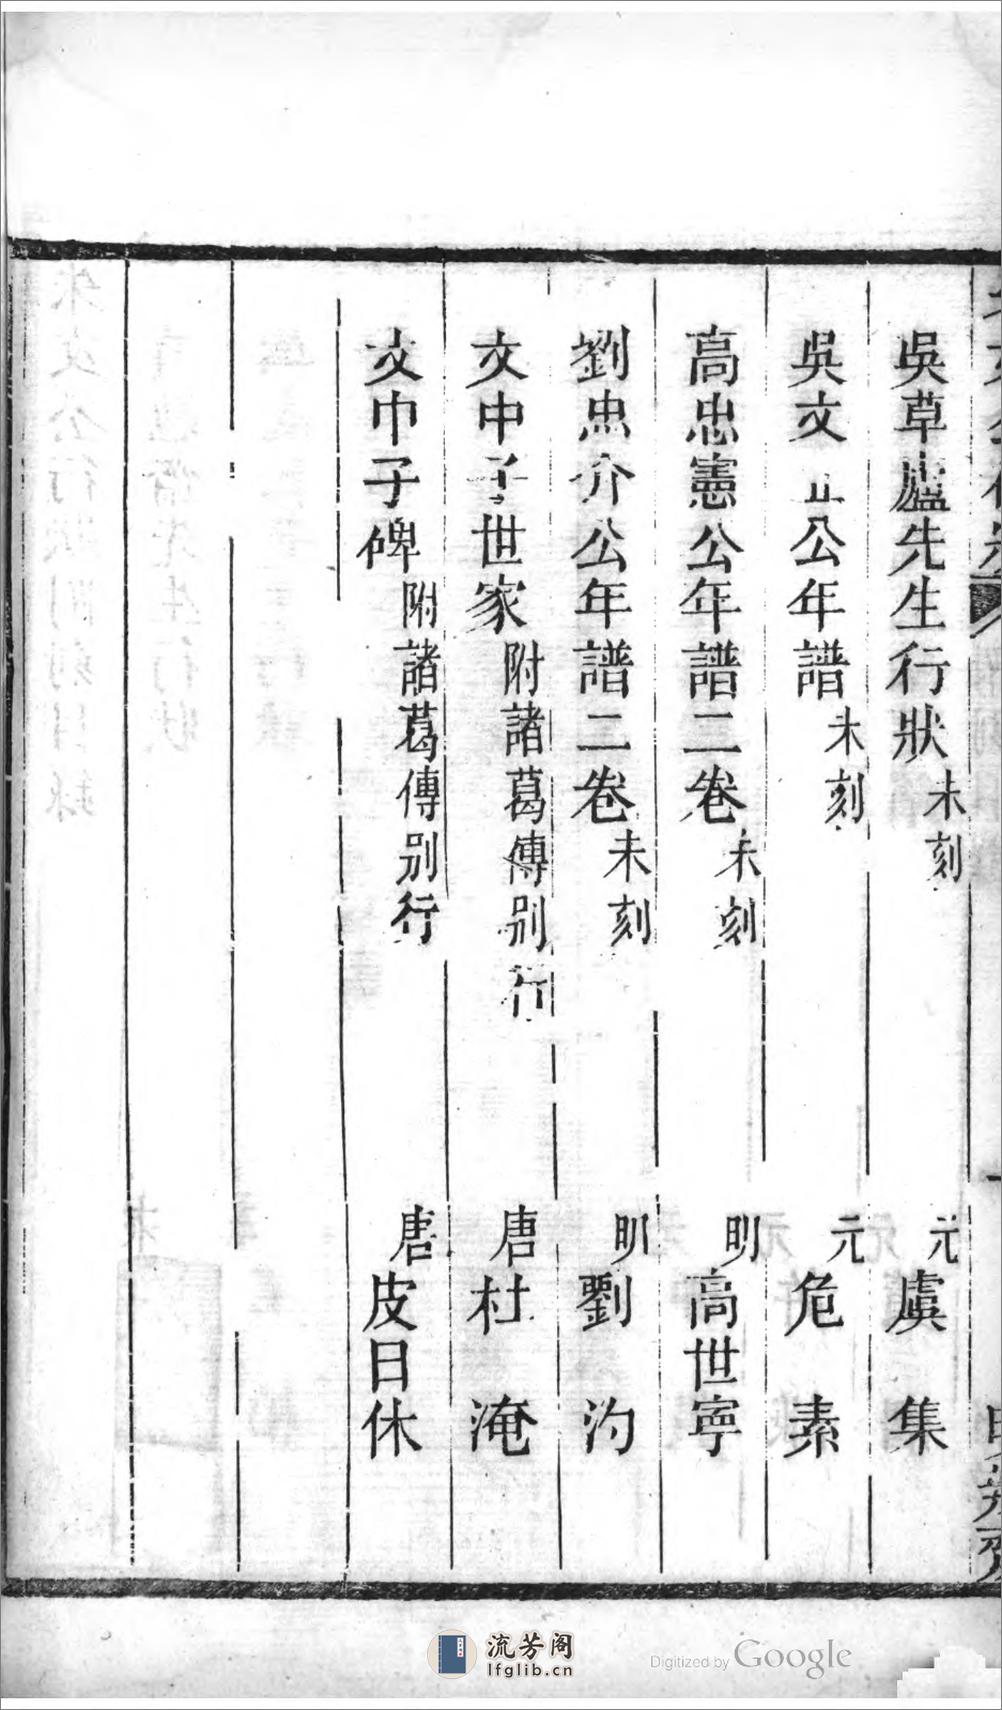 吳草廬先生行狀未刻 元虞集
吳文正公年譜未刻 元危素
高忠憲公年譜二卷未刻 明高世寧
劉忠介公年譜二卷未刻 明劉汋
文中子世家附諸葛傳別行 唐杜淹
文中子碑附諸葛傳別行 唐皮日休
流芳阁
lfglib.cn
Digitized by Google